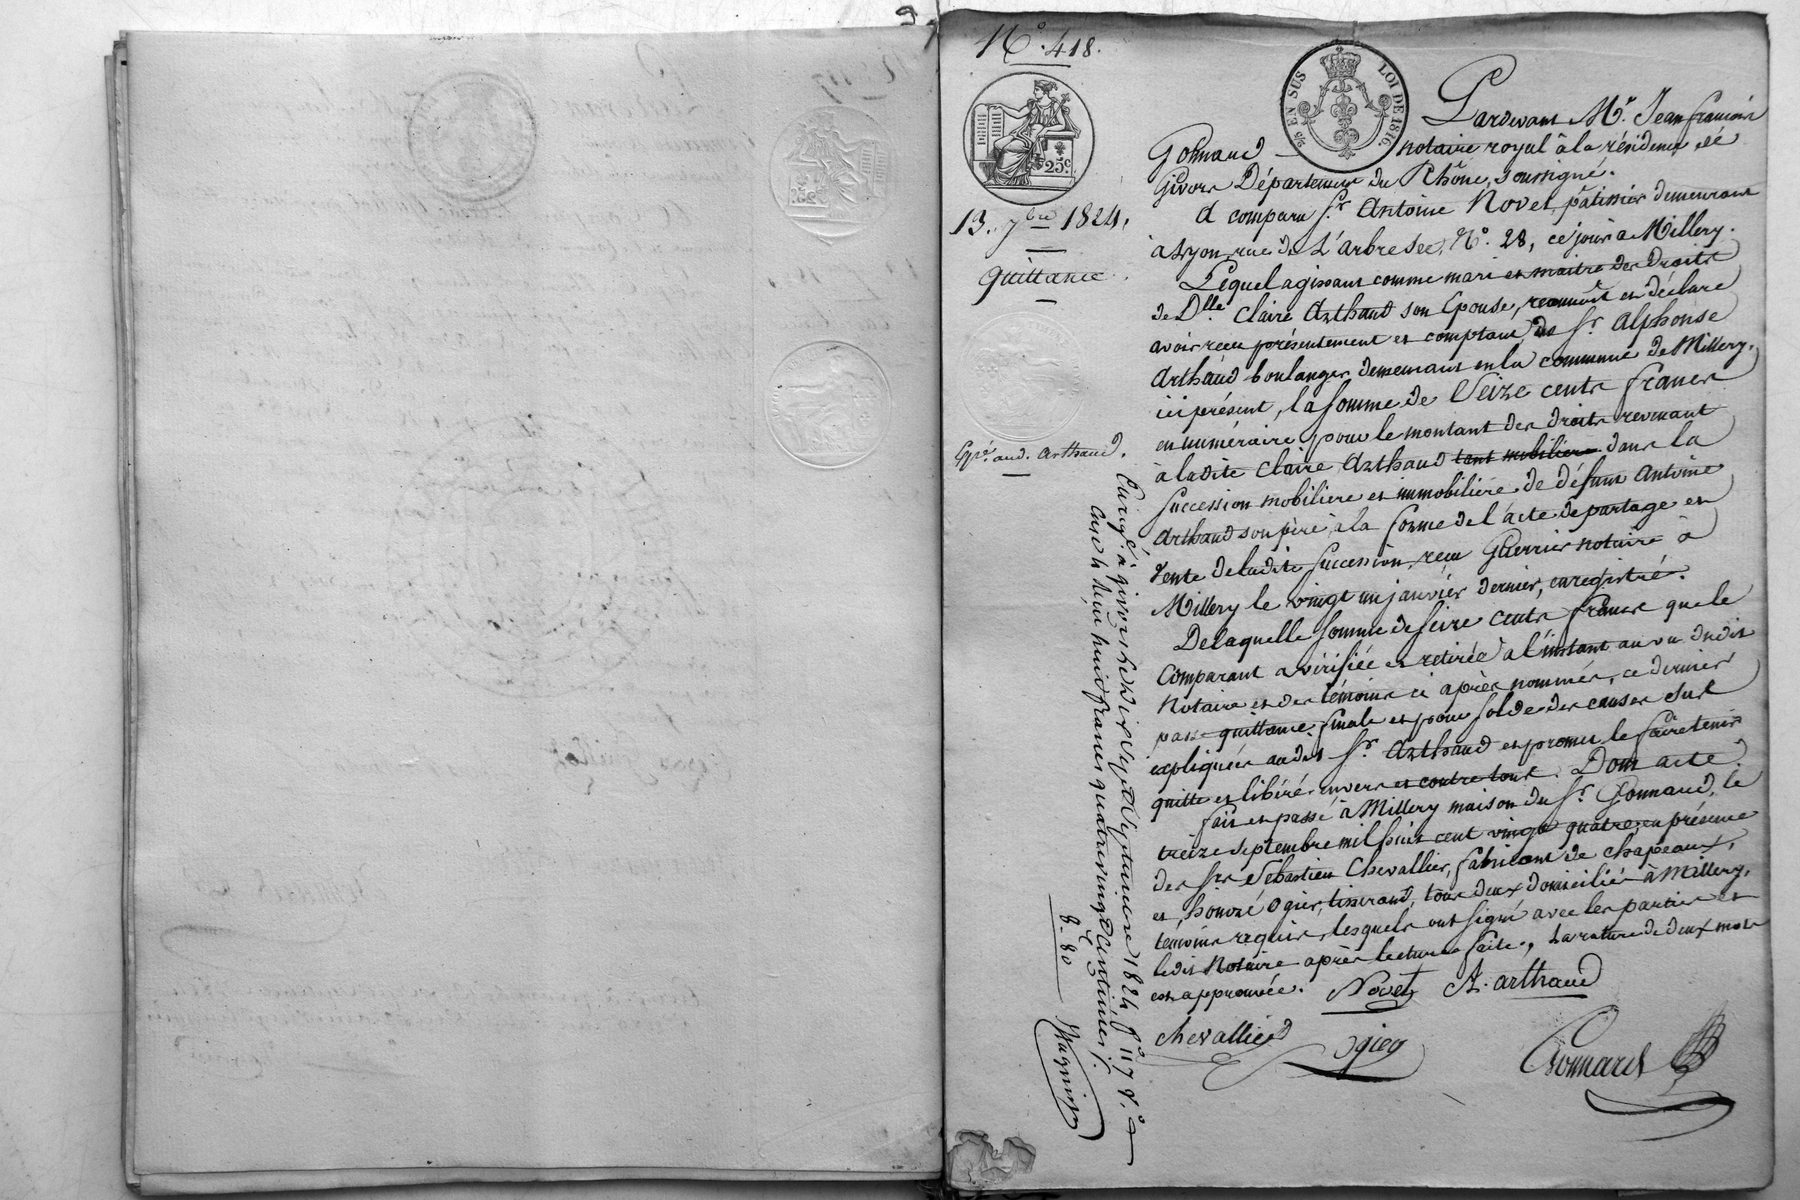 N.° 418.
25.c
¼ EN SUS LOI DE 1816.
13. 7bre 1824.
Quittance
Exp.é aud. Arthaud.
Pardevant M.e Jean françois
Gonnard notaire royal à la résidence de
Givors Département du Rhône, soussigné.
A comparu S.r Antoine Novet, pâtissier demeurant
à Lyon, rue de L'arbre sec, N.° 28, ce jour à Millery.
Lequel agissant comme mari et maitre des droits
de D.lle Claire Arthaud son Epouse, reconnoit et déclare
avoir reçu présentement et comptant, de S.r Alphonse
Arthaud boulanger demeurant en la commune de Millery,
ici présent, la somme de Seize cents francs
en numéraire, pour le montant des droits revenant
à ladite Claire Arthaud tant mobiliers dans la
succession mobiliere et immobilière de défunt Antoine
Arthaud son père, à la forme de l'acte de partage et
vente de ladite succession, reçu Guerrier notaire à
Millery le vingt un janvier dernier, enregistré.
De laquelle somme de seize cents francs que le
comparant a vérifiée et retirée à l'instant au vu dudit
Notaire et des témoins ci après nommés, ce dernier
passe quittance finale et pour solde des causes sus
expliquées audit S.r Arthaud et promet le faire tenir
quitte et libéré envers et contre tous. Dont acte.
fait et passé à Millery maison du S.r Gonnard, le
treize septembre mil huit cent vingt quatre, en présence
des Srs Sébastien Chevallier, fabricant de chapeaux,
et honoré Ogier, tisserand, tous deux domiciliés à Millery,
témoins requis, lesquels ont signé avec les parties et
ledit Notaire après lecture faite., La rature de deux mots
est approuvée.
Novet A. arthaud
chevallier ogier Gonnard
Enregt.é à givors le dix Sept Septembre 1824 f.° 117 R.°
Reçu huit francs quatre vingt Centimes.
8. 80